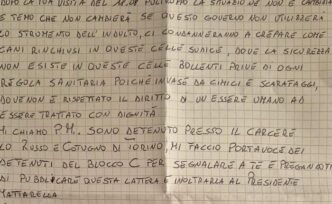 DOPO LA TUA VISITA DEL LA SITUAZIONE NON È CAMBIATA
E TEMO CHE NON CAMBIERÀ SE QUESTO GOVERNO NON UTILIZZERÀ
LO STRUMENTO DELL'INDULTO, CI CONDANNERANNO A CREPARE COME
CANI RINCHIUSI IN QUESTE CELLE SUDICE, DOVE LA SICUREZZA
NON ESISTE IN QUESTE CELLE BOLLENTI PRIVE DI OGNI
REGOLA SANITARIA POICHÉ INVASE DA CIMICI E SCARAFAGGI,
DOVE NON È RISPETTATO IL DIRITTO DI UN ESSERE UMANO AD
ESSERE TRATTATO CON DIGNITÀ
MI CHIAMO P.M. SONO DETENUTO PRESSO IL CARCERE
LO RUSSO E COTUGNO DI TORINO, MI FACCIO PORTAVOCE DEI
DETENUTI DEL BLOCCO C PER SEGNALARE A TE E PREGANDOTI
DI PUBBLICARE QUESTA LATTERA E INOLTRARLA AL PRESIDENTE
MATTARELLA